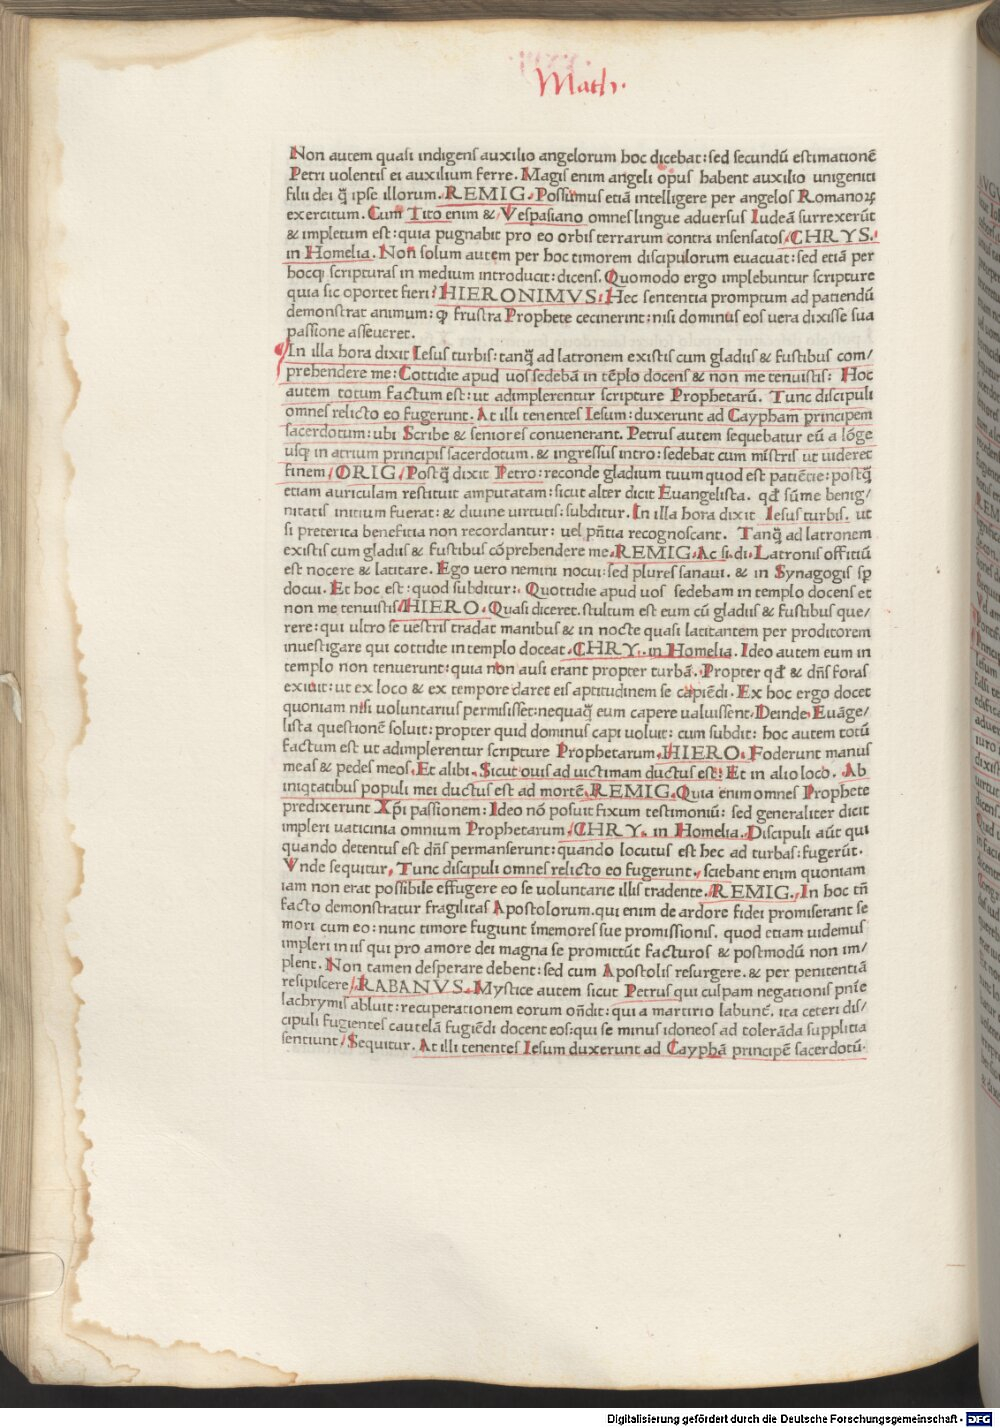 Math.
Non autem quasi indigens auxilio angelorum hoc dicebat: sed secundū estimationē
Petri uolentis ei auxilium ferre. Magis enim angeli opus habent auxilio unigeniti
filii dei q̄ ipse illorum. REMIG. Possumus etiā intelligere per angelos Romanoꝝ
exercitum. Cum Tito enim & Vespasiano omnes lingue aduersus Iudeā surrexerūt
& impletum est: quia pugnabit pro eo orbis terrarum contra insensatos. CHRYS.
in Homelia. Non solum autem per hoc timorem discipulorum euacuat: sed etiā per
hocq; scripturas in medium introducit: dicens. Quomodo ergo implebuntur scripture
quia sic oportet fieri? HIERONIMVS: Hec sententia promptum ad patiendū
demonstrat animum: ꝙ frustra Prophete cecinerint: nisi dominus eos uera dixisse sua
passione asseueret.
In illa hora dixit Iesus turbis: tanq̄ ad latronem existis cum gladiis & fustibus com/
prehendere me: Cottidie apud uos sedebā in tēplo docens & non me tenuistis: Hoc
autem totum factum est: ut adimplerentur scripture Prophetarū. Tunc discipuli
omnes relicto eo fugerunt. At illi tenentes Iesum: duxerunt ad Caypham principem
sacerdotum: ubi Scribe & seniores conuenerant. Petrus autem sequebatur eū a lōge
usq; in atrium principis sacerdotum. & ingressus intro: sedebat cum mīstris ut uideret
finem. ORIG. Postq̄ dixit Petro: reconde gladium tuum quod est patiētie: postq̄
etiam auriculam restituit amputatam: sicut alter dicit Euangelista. qđ sūme benig/
nitatis initium fuerat: & diuine uirtutis: subditur. In illa hora dixit Iesus turbis. ut
si preterita benefitia non recordantur: uel pn̄tia recognoscant. Tanq̄ ad latronem
existis cum gladiis & fustibus cōprehendere me. REMIG. Ac si. di. Latronis offitiū
est nocere & latitare. Ego uero nemini nocui: sed plures sanaui. & in Synagogis sp̄
docui. Et hoc est: quod subditur: Quottidie apud uos sedebam in templo docens et
non me tenuistis. HIERO. Quasi diceret. stultum est eum cū gladiis & fustibus que/
rere: qui ultro se uestris tradat manibus & in nocte quasi latitantem per proditorem
inuestigare qui cottidie in templo doceat. CHRY. in Homelia. Ideo autem eum in
templo non tenuerunt: quia non ausi erant propter turbā. Propter qđ & dn̄s foras
exiuit: ut ex loco & ex tempore daret eis aptitudinem se capiēdi. Ex hoc ergo docet
quoniam nisi uoluntarius permisisset: nequaq̄ eum capere ualuissent. Deinde. Euāge/
lista questionē soluit: propter quid dominus capi uoluit: cum subdit: hoc autem totū
factum est ut adimplerentur scripture Prophetarum. HIERO. Foderunt manus
meas & pedes meos. Et alibi. Sicut ouis ad uictimam ductus est: Et in alio loco. Ab
iniqtatibus populi mei ductus est ad mortē. REMIG. Quia enim omnes Prophete
predixerunt Xp̄i passionem: Ideo nō posuit fixum testimoniū: sed generaliter dicit
impleri uaticinia omnium Prophetarum. CHRY. in Homelia. Discipuli aūt qui
quando detentus est dn̄s permanserunt: quando locutus est hec ad turbas: fugerūt.
Vnde sequitur, Tunc discipuli omnes relicto eo fugerunt. sciebant enim quoniam
iam non erat possibile effugere eo se voluntarie illis tradente. REMIG. In hoc tn̄
facto demonstratur fragilitas Apostolorum. qui enim de ardore fidei promiserant se
mori cum eo: nunc timore fugiunt īmemores sue promissionis. quod etiam uidemus
impleri in iis qui pro amore dei magna se promittūt facturos & postmodū non im/
plent. Non tamen desperare debent: sed cum Apostolis resurgere. & per penitentiā
resipiscere. RABANVS. Mystice autem sicut Petrus qui culpam negationis pn̄ie
lachrymis abluit: recuperationem eorum on̄dit: qui a martirio labunt̄. ita ceteri dis/
cipuli fugientes cautelā fugiēdi docent eos: qui se minus idoneos ad tolerāda supplitia
sentiunt. Sequitur. At illi tenentes Iesum duxerunt ad Cayphā principē sacerdotū.
Digitalisierung gefördert durch die Deutsche Forschungsgemeinschaft - DFG